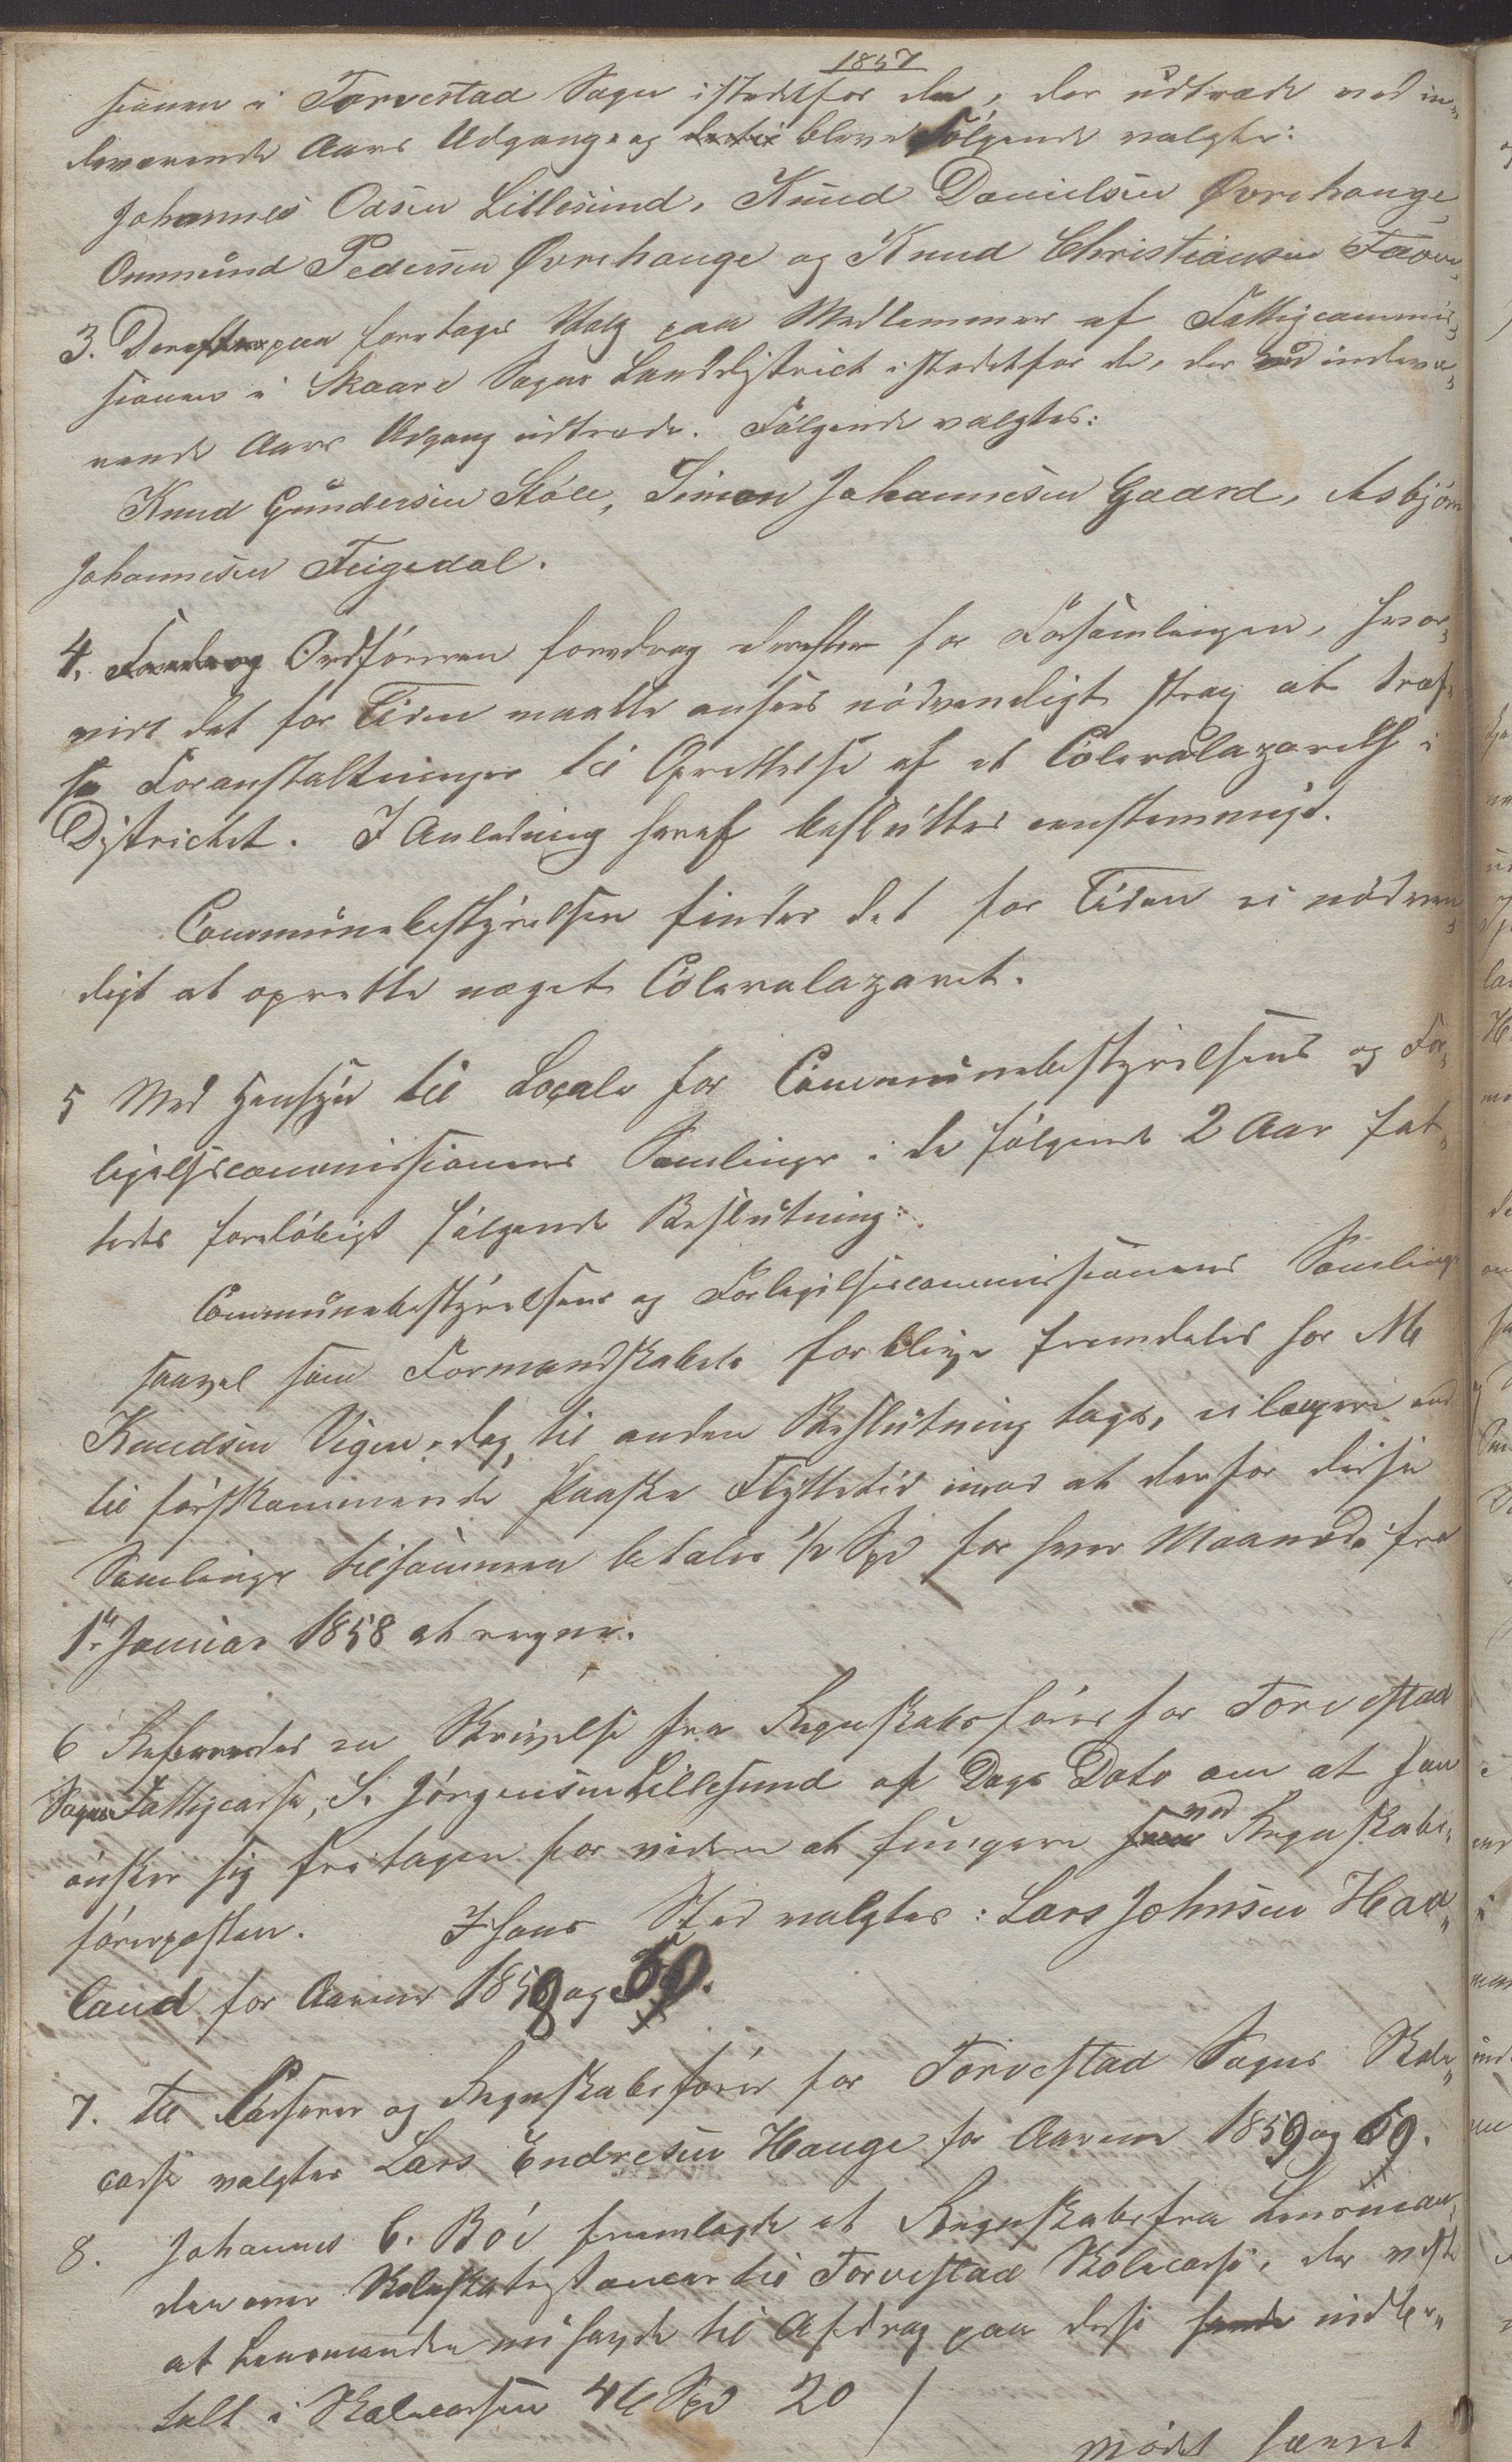 1857
sionen i Torvestad Sogn istedetfor de, der udtræde ved in-
deværende Aars Udgang og bleve Følgende valgte:
Johannes Olsen Lillesund, Knud Danielsen Øvrehauge,
Ommund Pedersen Øvrehauge og Knud Christiansen
3. Derefter foretoges Valg paa Medlemmer af Fattigcommis-
sionen i Skaare Sogns Landdistrict istedetfor de, der ved indevæ-
rende Aars Udgang udtræde. Følgende valgtes:
Knud Gundersen Støle, Simon Johannesen Gaard, Asbjørn
Johannesen Feigedal.
4. Foredrog Ordføreren foredrog derefter for Forsamlingen, hvor-
vidt det for Tiden maatte ansees nødvendigt strax at træf-
fe Foranstaltninger til Oprettelse af et Coleralazareth i
Districtet. I Anledning heraf besluttes eenstemmigt.
Communebestyrelsen finder det for Tiden ei nødven-
digt at oprette noget Coleralazaret.
5 Med Hensyn til Locale for Communebestyrelsens og For-
ligelsescommissionens Samlinger i de følgende 2 Aar fat-
tedes foreløbigt følgende Beslutning:
Communebestyrelsens og Forligelsescommissionens Samlinger
saavel som Formandskabets forblive fremdeles hos M
Knudsen Vigen, dog, til anden Beslutning tages, ei længere end
til førstkommende Paaske Flyttetid imod at der for disse
Samlinger tilsammen betales ½ Spd for hver Maaned fra
1ste Januar 1858 at regne.
6 Refereredes en Skrivelse fra Regnskabsfører for Torvestad
Sogns Fattigcasse, S. Jørgensen Lillesund af Dags Dato om at han
ønsker sig fritagen for videre at fungere ved Regnskabs-
førerposten. I hans Sted valgtes: Lars Johnsen Haa-
land for Aarene 1858 og 59.
7. Til Casserer og Regnskabsfører for Torvestad Sogns Skole-
casse valgtes Lars Endresen Hauge for Aarene 1859 og 59.
8. Johannes C. Bøe fremlagde et Regnskab fra Lensman-
den over til Torvestad Skolecasse, der viste
at Lensmanden nu havde til Afdrag paa disse indbe-
talt i Skolecassen 46 Spd 20 /
Mødet hævet